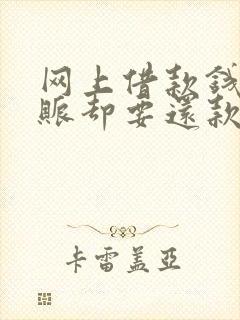 网上借款钱
账却要还款
卡雷盖亚